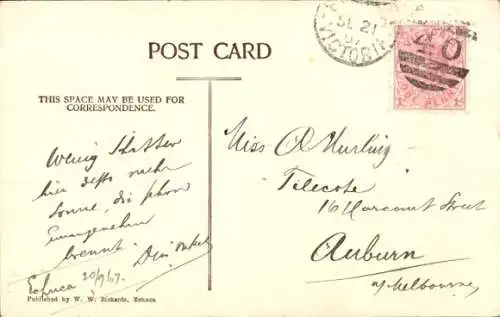 POST CARD
SE 21
07
VICTORIA
THIS SPACE MAY BE USED FOR
CORRESPONDENCE.
Wenig Schatten
hier desto mehr
Sonne, die schon
unangenehm
brennt. Dein Onkel
Echuca 20/9/07.
Published by W. W. Rickards, Echuca
Miss A Hurling
Telecote
16 Harcourt Street
Auburn
n/Melbourne